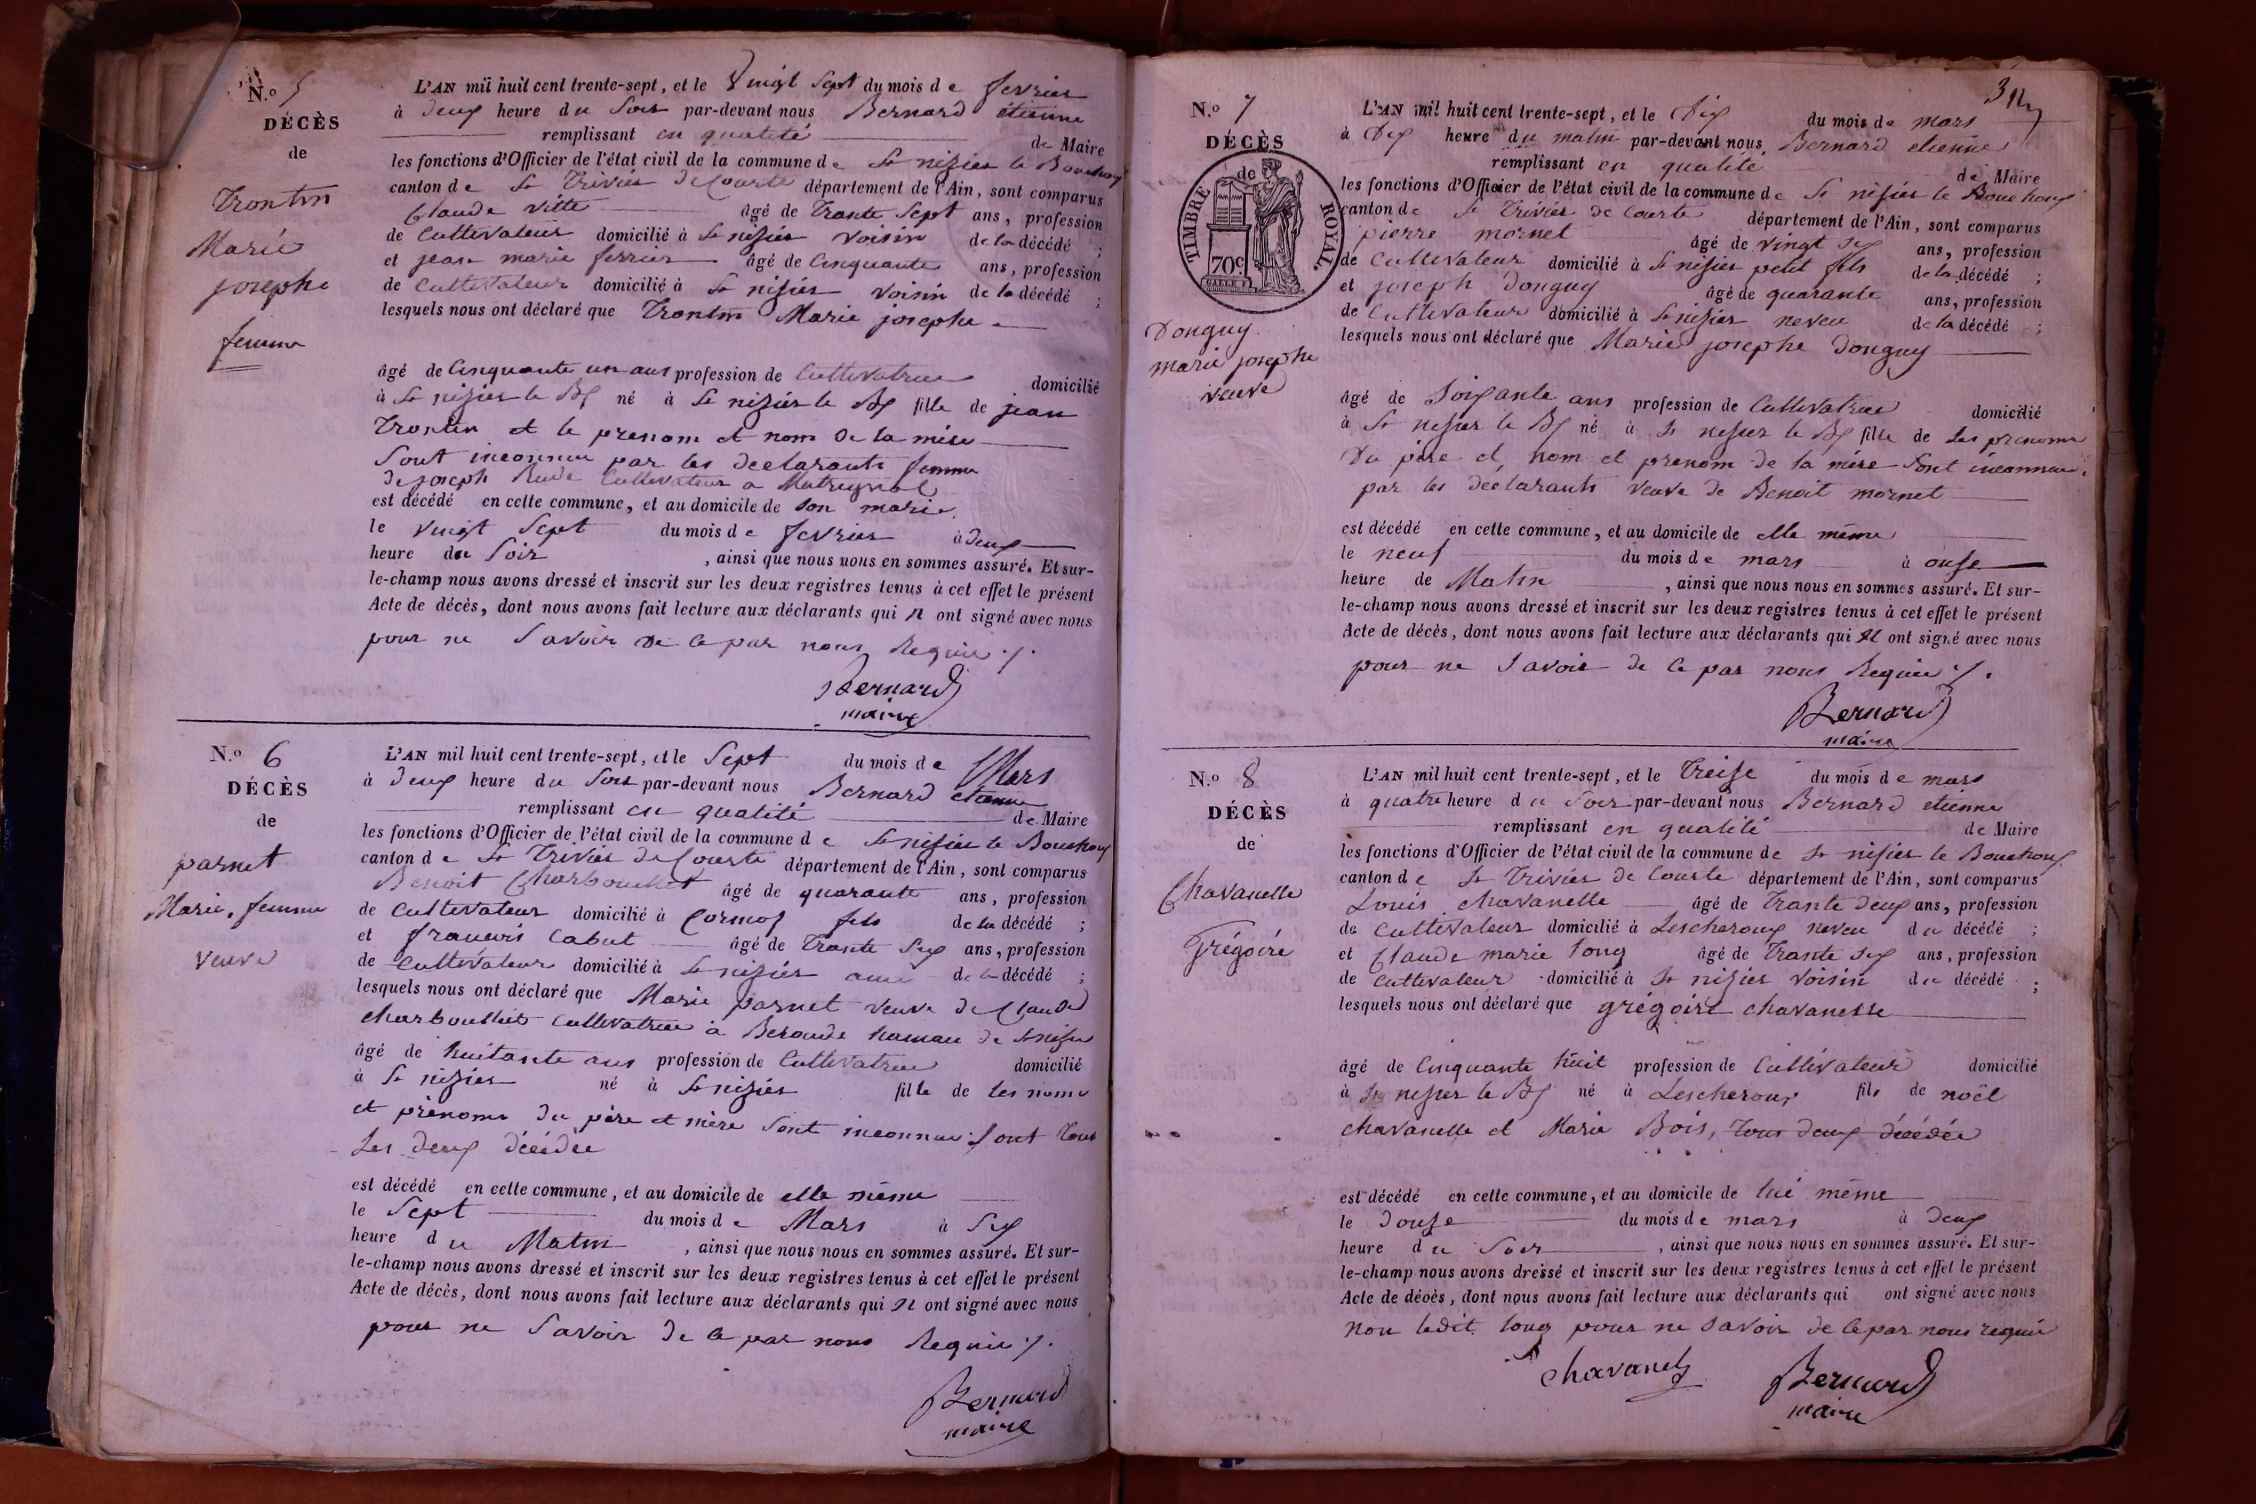 N.o 5
DÉCÈS
de
Trontin
Marie
josephe
femme
L'AN mil huit cent trente-sept, et le Vingt Sept du mois de fevrier
à deux heure du Soir par-devant nous Bernard etienne
remplissant en qualité de Maire
les fonctions d'Officier de l'état civil de la commune de St nizier le Bouchoux
canton de St Trivier de Courte département de l'Ain, sont comparus
Claude Vitte âgé de Trante Sept ans, profession
de Cultivateur domicilié à St nizier voisin de la décédé ;
et jean marie ferrier âgé de Cinquante ans, profession
de Cultivateur domicilié à St nizier voisin de la décédé ;
lesquels nous ont déclaré que Trontin Marie josephe
âgé de Cinquante un ans profession de Cultivatrice domicilié
à St nizier le Bx né à St nizier le Bx fille de jean
Trontin et le prenom et nom de la mère
Sont inconnu par les declarants femme
de joseph Rude Cultivateur a
est décédé en cette commune, et au domicile de son marie
le vingt Sept du mois de fevrier à deux
heure du Soir , ainsi que nous nous en sommes assuré. Et sur-
le-champ nous avons dressé et inscrit sur les deux registres tenus à cet effet le présent
Acte de décès, dont nous avons fait lecture aux déclarants qui n ont signé avec nous
pour ne Savoir de ce par nous Requis ./.
Bernard
maire
N.o 6
DÉCÈS
de
parnet
Marie, femme
veuve
L'AN mil huit cent trente-sept, et le Sept du mois de Mars
à deux heure du Soir par-devant nous Bernard etienne
remplissant en qualité de Maire
les fonctions d'Officier de l'état civil de la commune de St nizier le Bouchoux
canton de St Trivier de Courte département de l'Ain, sont comparus
Benoit Charbouillet âgé de quarante ans, profession
de Cultivateur domicilié à Cormoz fils de la décédé ;
et francois Cabut âgé de Trante Six ans, profession
de Cultivateur domicilié à St nizier ami de la décédé ;
lesquels nous ont déclaré que Marie parnet veuve de Claude
charbouillet Cultivatrice à Beroude hameau de St nizier
âgé de huitante ans profession de Cultivatrice domicilié
à St nizier né à St nizier fille de les noms
et prénoms du père et mère Sont inconnu Sont tous
Les deux décédée
est décédé en cette commune, et au domicile de elle même
le Sept du mois de Mars à Six
heure du Matin , ainsi que nous nous en sommes assuré. Et sur-
le-champ nous avons dressé et inscrit sur les deux registres tenus à cet effet le présent
Acte de décès, dont nous avons fait lecture aux déclarants qui n ont signé avec nous
pour ne Savoir de ce par nous Requis ./.
Bernard
maire
N.o 7
DÉCÈS
de
TIMBRE ROYAL.
70c
Donguy
marie josephe
veuve
L'AN mil huit cent trente-sept, et le Dix du mois de mars
à Dix heure du matin par-devant nous Bernard etienne
remplissant en qualité de Maire
les fonctions d'Officier de l'état civil de la commune de St nizier le Bouchoux
canton de St Trivier de Courte département de l'Ain, sont comparus
pierre mornet âgé de vingt six ans, profession
de Cultivateur domicilié à St nizier petit fils de la décédé ;
et joseph Donguy âgé de quarante ans, profession
de Cultivateur domicilié à St nizier neveu de la décédé ;
lesquels nous ont déclaré que Marie josephe Donguy
âgé de Soixante ans profession de Cultivatrice domicilié
à St nizier le Bx né à St nizier le Bx fille de Les prenoms
Du père et nom et prenom de la mère Sont inconnu
par les declarants veuve de Benoit mornet
est décédé en cette commune, et au domicile de elle même
le neuf du mois de mars à onse
heure de Matin , ainsi que nous nous en sommes assuré. Et sur-
le-champ nous avons dressé et inscrit sur les deux registres tenus à cet effet le présent
Acte de décès, dont nous avons fait lecture aux déclarants qui n ont signé avec nous
pour ne Savoir de ce par nous Requis ./.
Bernard
maire
N.o 8
DÉCÈS
de
Chavanelle
Grégoire
L'AN mil huit cent trente-sept, et le Treize du mois de mars
à quatre heure du Soir par-devant nous Bernard etienne
remplissant en qualité de Maire
les fonctions d'Officier de l'état civil de la commune de St nizier le Bouchoux
canton de St Trivier de Courte département de l'Ain, sont comparus
Louis chavanelle âgé de Trante deux ans, profession
de Cultivateur domicilié à Lescheroux neveu du décédé ;
et Claude marie long âgé de Trante Six ans, profession
de Cultivateur domicilié à St nizier voisin du décédé ;
lesquels nous ont déclaré que grégoire chavanelle
âgé de Cinquante huit profession de Cultivateur domicilié
à St nizier le Bx né à Lescheroux fils de noël
chavanelle et Marie Bois, tous deux décédée
est décédé en cette commune, et au domicile de lui même
le douse du mois de mars à deux
heure du Soir , ainsi que nous nous en sommes assuré. Et sur-
le-champ nous avons dressé et inscrit sur les deux registres tenus à cet effet le présent
Acte de décès, dont nous avons fait lecture aux déclarants qui ont signé avec nous
non ledit long pour ne savoir de ce par nous requis
chavanel Bernard
maire